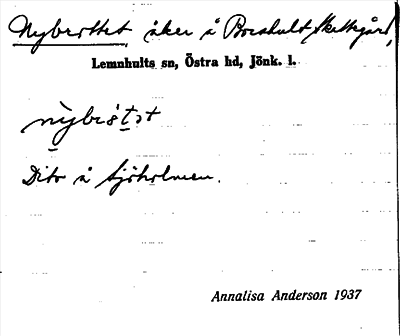 Nybrottet, åker å Boeshult Skattegård,
Lemnhults sn, Östra hd, Jönk. l.
Dito å Sjöholmen.
Annalisa Anderson 1937